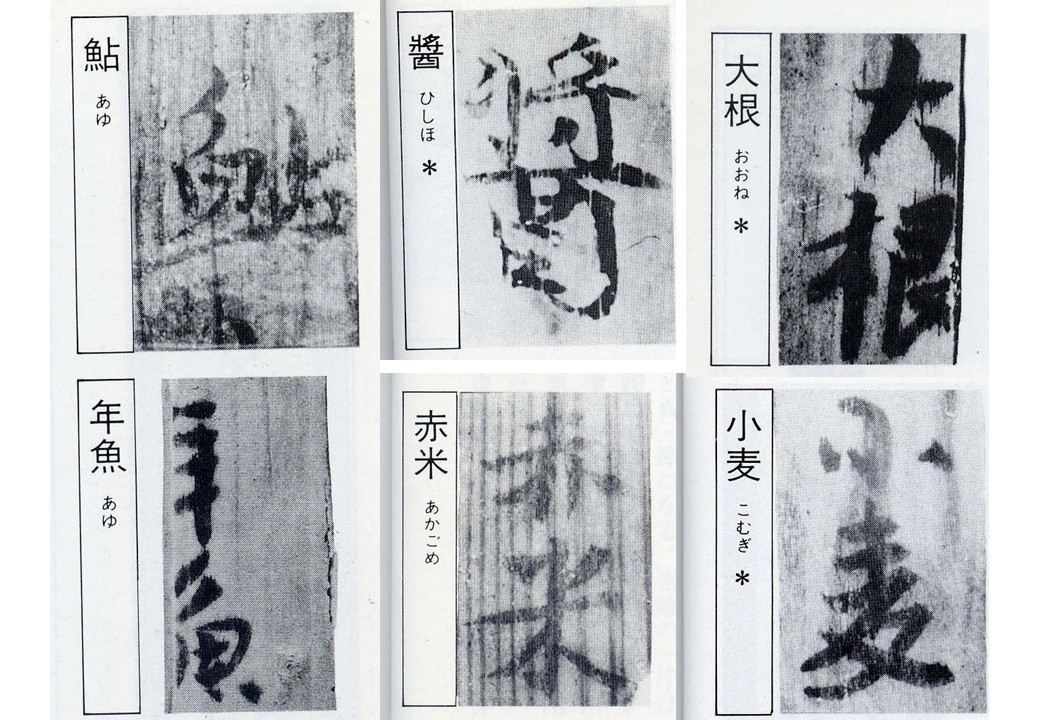 鮎 あゆ
鮎
醬 ひしほ *
醬
大根 おおね *
大根
年魚 あゆ
年魚
赤米 あかごめ
赤米
小麦 こむぎ *
小麦